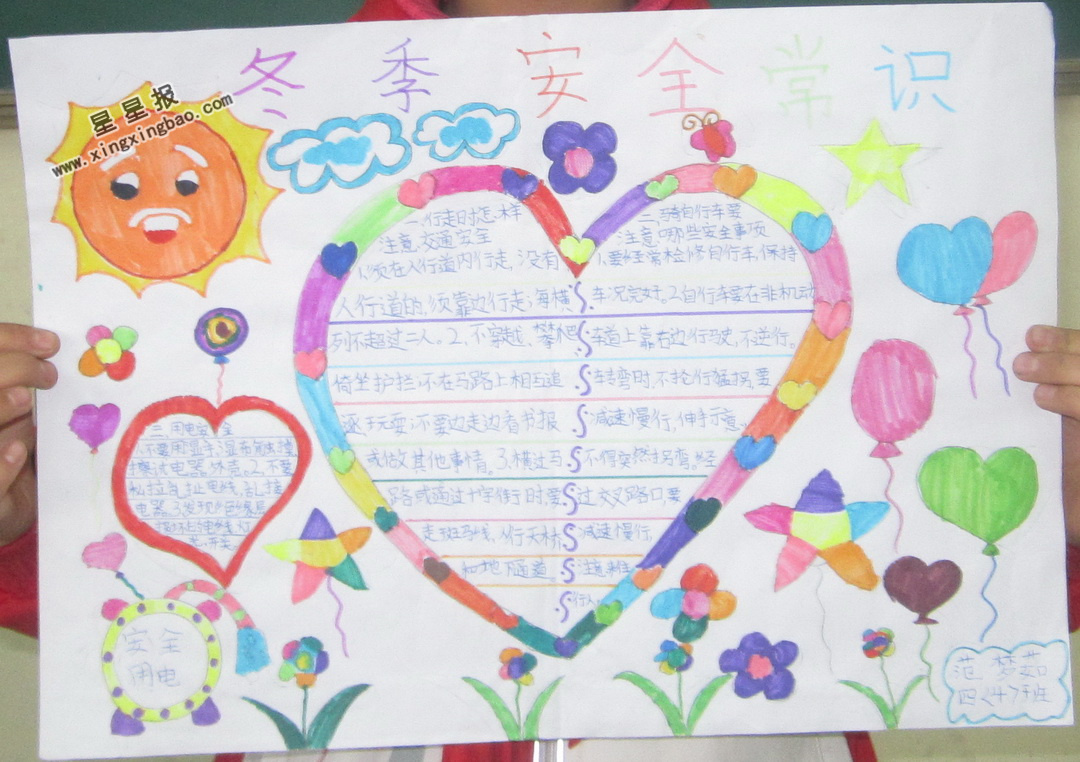 冬季安全常识
星星报
www.xingxingbao.com
一、行走时怎样
注意交通安全
1、须在人行道内行走,没有
人行道的,须靠边行走;每横
列不超过二人。2、不穿越、攀爬
倚坐护栏;不在马路上相互追
逐玩耍;不要边走边看书报
或做其他事情。3、横过马
路或通过十字街时,要
走斑马线、人行天桥
和地下通道
二、骑自行车要
注意哪些安全事项
1、要经常检修自行车,保持
车况完好。2、自行车要在非机动
车道上靠右边行驶,不逆行。
车转弯时,不抢行猛拐,要
减速慢行,伸手示意。
不得突然拐弯。经
过交叉路口,要
减速慢行
注意
行人
三、用电安全
1、不要用湿手、湿布触摸、
擦过电器外壳。2、不要
私拉乱扯电线,乱接
电器。3、发现
安全
用电
范梦茹
四<4>班